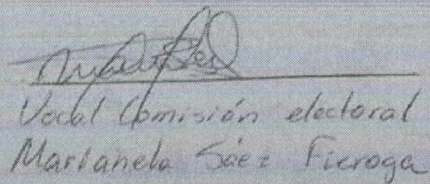 Vocal Comisión electoral
Marianela Sáez Fieroga